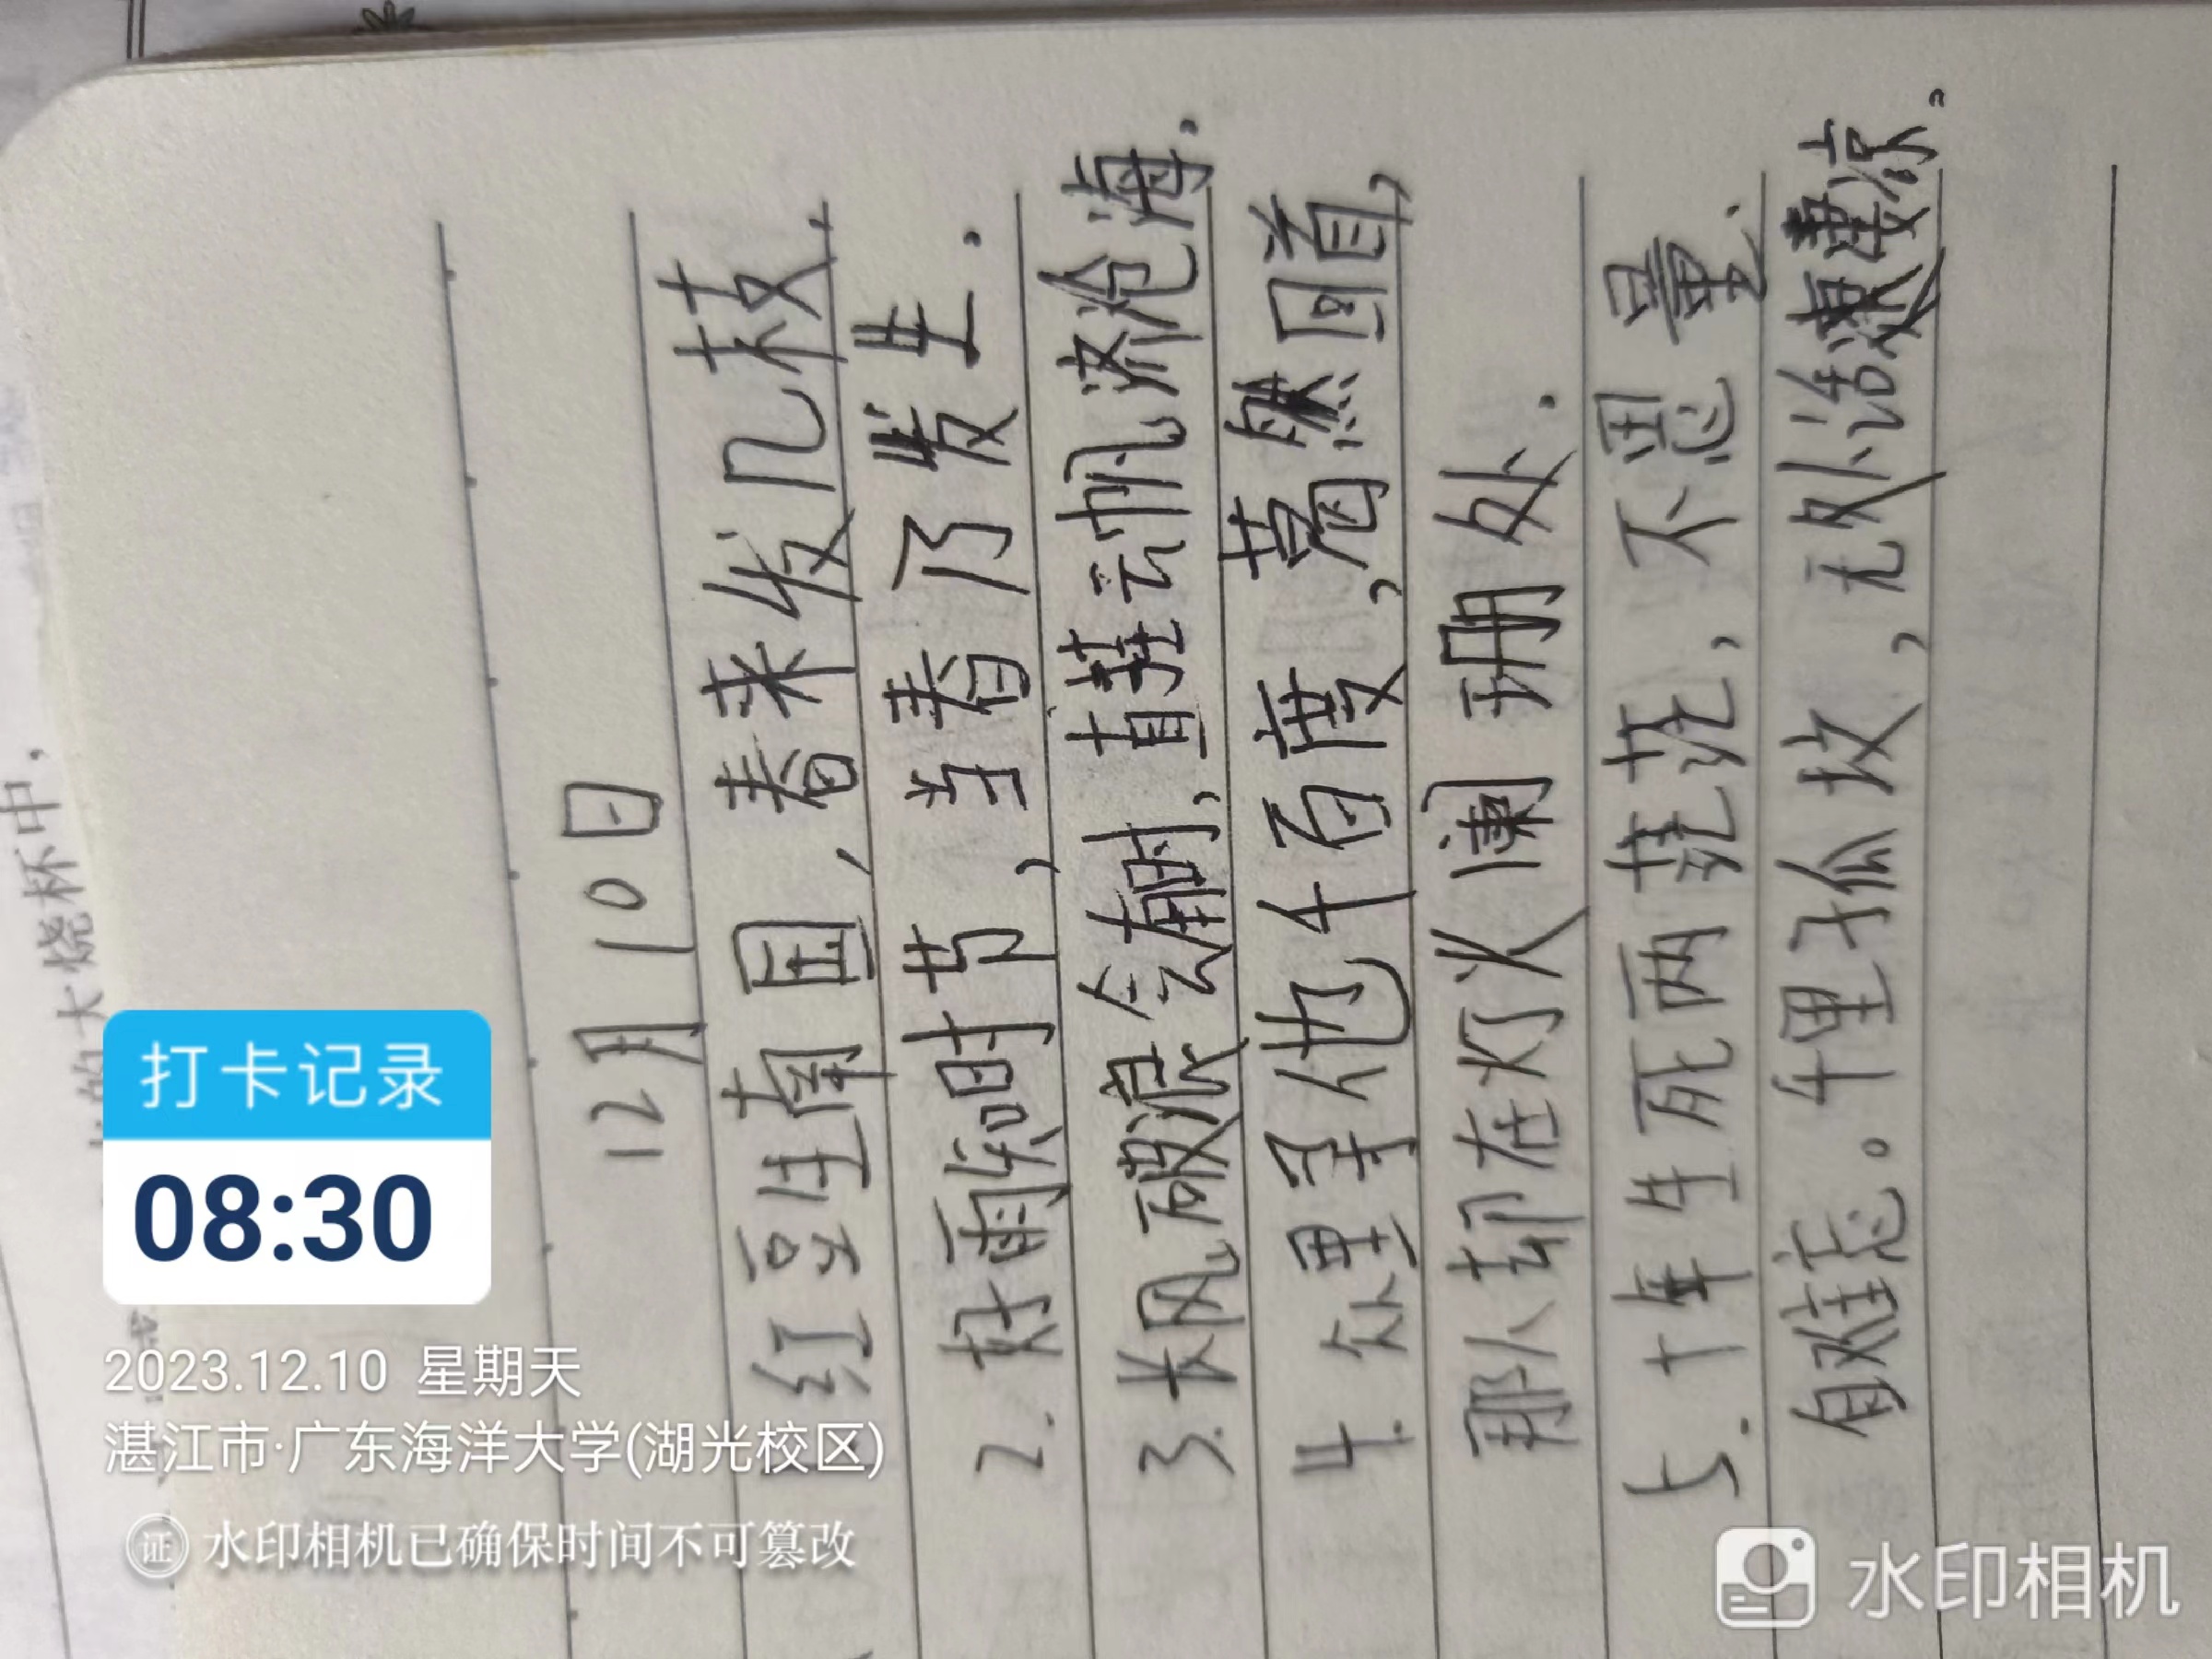 12月10日
红豆生南国,春来发几枝.
2. 好雨知时节,当春乃发生.
3. 长风破浪会有时,直挂云帆济沧海.
4. 众里寻他千百度,蓦然回首,
那人却在灯火阑珊处.
5. 十年生死两茫茫,不思量.
自难忘。千里孤坟,无处话凄凉.
的大烧杯中,
打卡记录
08:30
2023.12.10 星期天
湛江市·广东海洋大学(湖光校区)
证 水印相机已确保时间不可篡改
水印相机